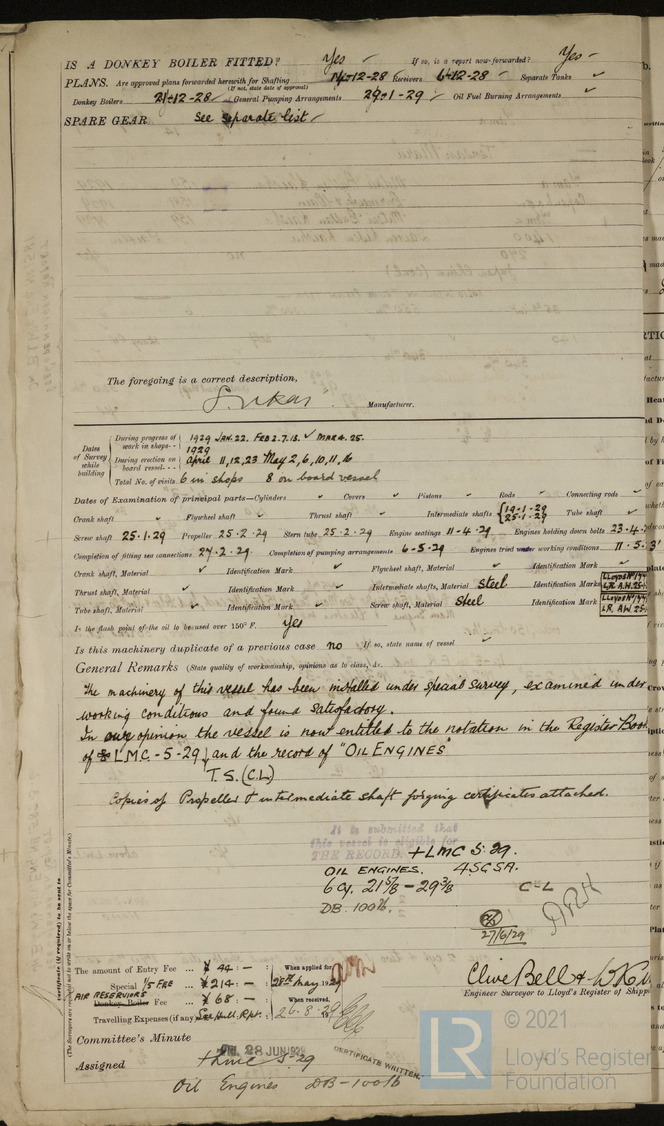 IS A DONKEY BOILER FITTED? Yes If so, is a report now forwarded? Yes
PLANS. Are approved plans forwarded herewith for Shafting 14-12-28 Receivers 6-12-28 Separate Tanks ✓
(If not, state date of approval)
Donkey Boilers 21-12-28 General Pumping Arrangements 29-1-29 Oil Fuel Burning Arrangements ✓
SPARE GEAR See separate list
The foregoing is a correct description,
Manufacturer.
Dates of Survey while building
During progress of work in shops - - 1929 JAN. 22. FEB 2.7.13. MAR 4. 25.
1929
During erection on board vessel - - - April 11, 12, 23 May 2, 6, 10, 11, 16
Total No. of visits 6 in shops 8 on board vessel
Dates of Examination of principal parts—Cylinders ✓ Covers ✓ Pistons ✓ Rods ✓ Connecting rods ✓
Crank shaft ✓ Flywheel shaft ✓ Thrust shaft ✓ Intermediate shafts 19-1-29 25-1-29 Tube shaft ✓
Screw shaft 25.1.29 Propeller 25-2-29 Stern tube 25-2-29 Engine seatings 11-4-29 Engines holding down bolts 23-4-
Completion of fitting sea connections 27.2.29 Completion of pumping arrangements 6-5-29 Engines tried under working conditions 11-5-
Crank shaft, Material ✓ Identification Mark ✓ Flywheel shaft, Material ✓ Identification Mark ✓
Thrust shaft, Material ✓ Identification Mark ✓ Intermediate shafts, Material Steel Identification Marks
Tube shaft, Material ✓ Identification Mark ✓ Screw shaft, Material Steel Identification Mark
Is the flash point of the oil to be used over 150° F. Yes
Is this machinery duplicate of a previous case no If so, state name of vessel ✓
General Remarks (State quality of workmanship, opinions as to class, &c.
The machinery of this vessel has been installed under special survey, examined under
working conditions and found satisfactory.
In our opinion the vessel is now entitled to the notation in the Register Book
of L.M.C. - 5 - 29, and the record of "OIL ENGINES"
T.S. (C.L)
Copies of Propeller & intermediate shaft forging certificates attached.
It is submitted that
this vessel is eligible for
THE RECORD. + LMC 5.29.
OIL ENGINES. 4SCSA.
6 Cy. 21 5/8 - 29 3/8 C-L
DB. 100 lb.
27/6/29
Certificate (if required) to be sent to
(The Surveyors are requested not to write on or below the space for Committee's Minute.)
The amount of Entry Fee ... £ 44 : - When applied for,
Special 1/5 FEE ... £ 214 : - 28th May 1929
AIR RESERVOIRS
Donkey Boiler Fee ... £ 68 : - When received,
Travelling Expenses (if any) See Hull Rpt. 26.8.29
Clive Bell &
Engineer Surveyor to Lloyd's Register of Shipp
Committee's Minute FRI. 28 JUN 1929
Assigned + LMC 5.29
CERTIFICATE WRITTEN.
Oil Engines DB-100 lb
LR
© 2021
Lloyd's Register
Foundation